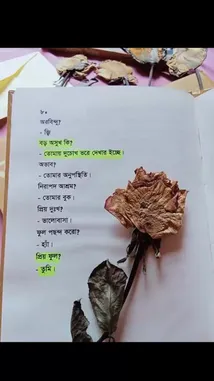 ৮০
অরবিন্দু?
- জ্বি
বড় অসুখ কি?
- তোমায় দুচোখ ভরে দেখার ইচ্ছে।
অভাব?
- তোমার অনুপস্থিতি।
নিরাপদ আশ্রম?
- তোমার বুক।
প্রিয় দুঃখ?
- ভালোবাসা।
ফুল পছন্দ করো?
- হ্যাঁ।
প্রিয় ফুল?
- তুমি।